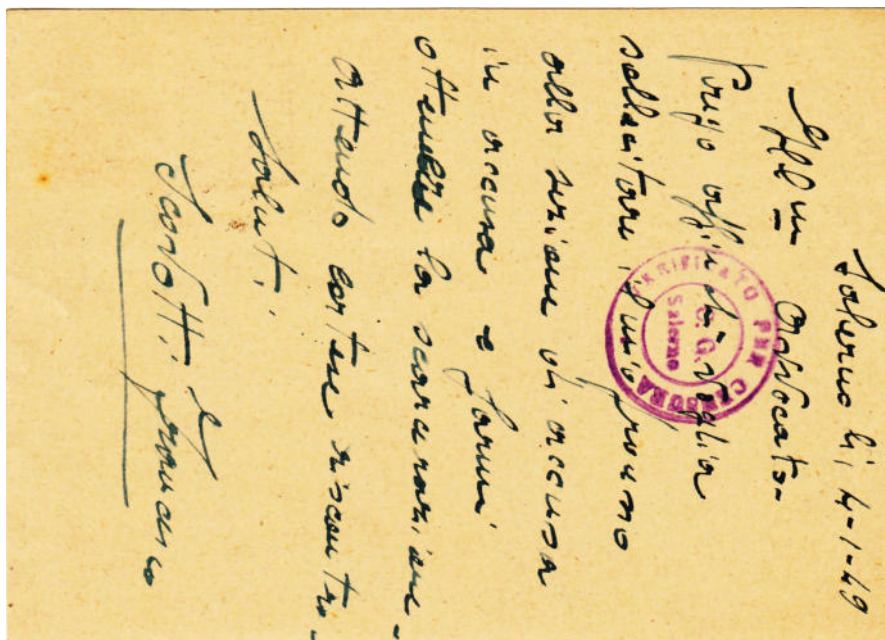 Salerno li, 4-1-49
Ill m Avvocato-
Prego affinchè voglia
sollecitare il mio
alla sezione di accusa
in accusa e farmi
ottenere la scarcerazione-
attendo cortese riscontro-
Saluti
Scarlotti Francesco
VERIFICATO PER CENSURA
C. G.
Salerno